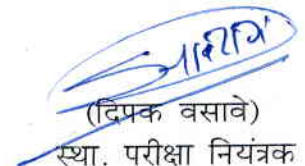 (दिपक वसावे)
स्था. परीक्षा नियंत्रक